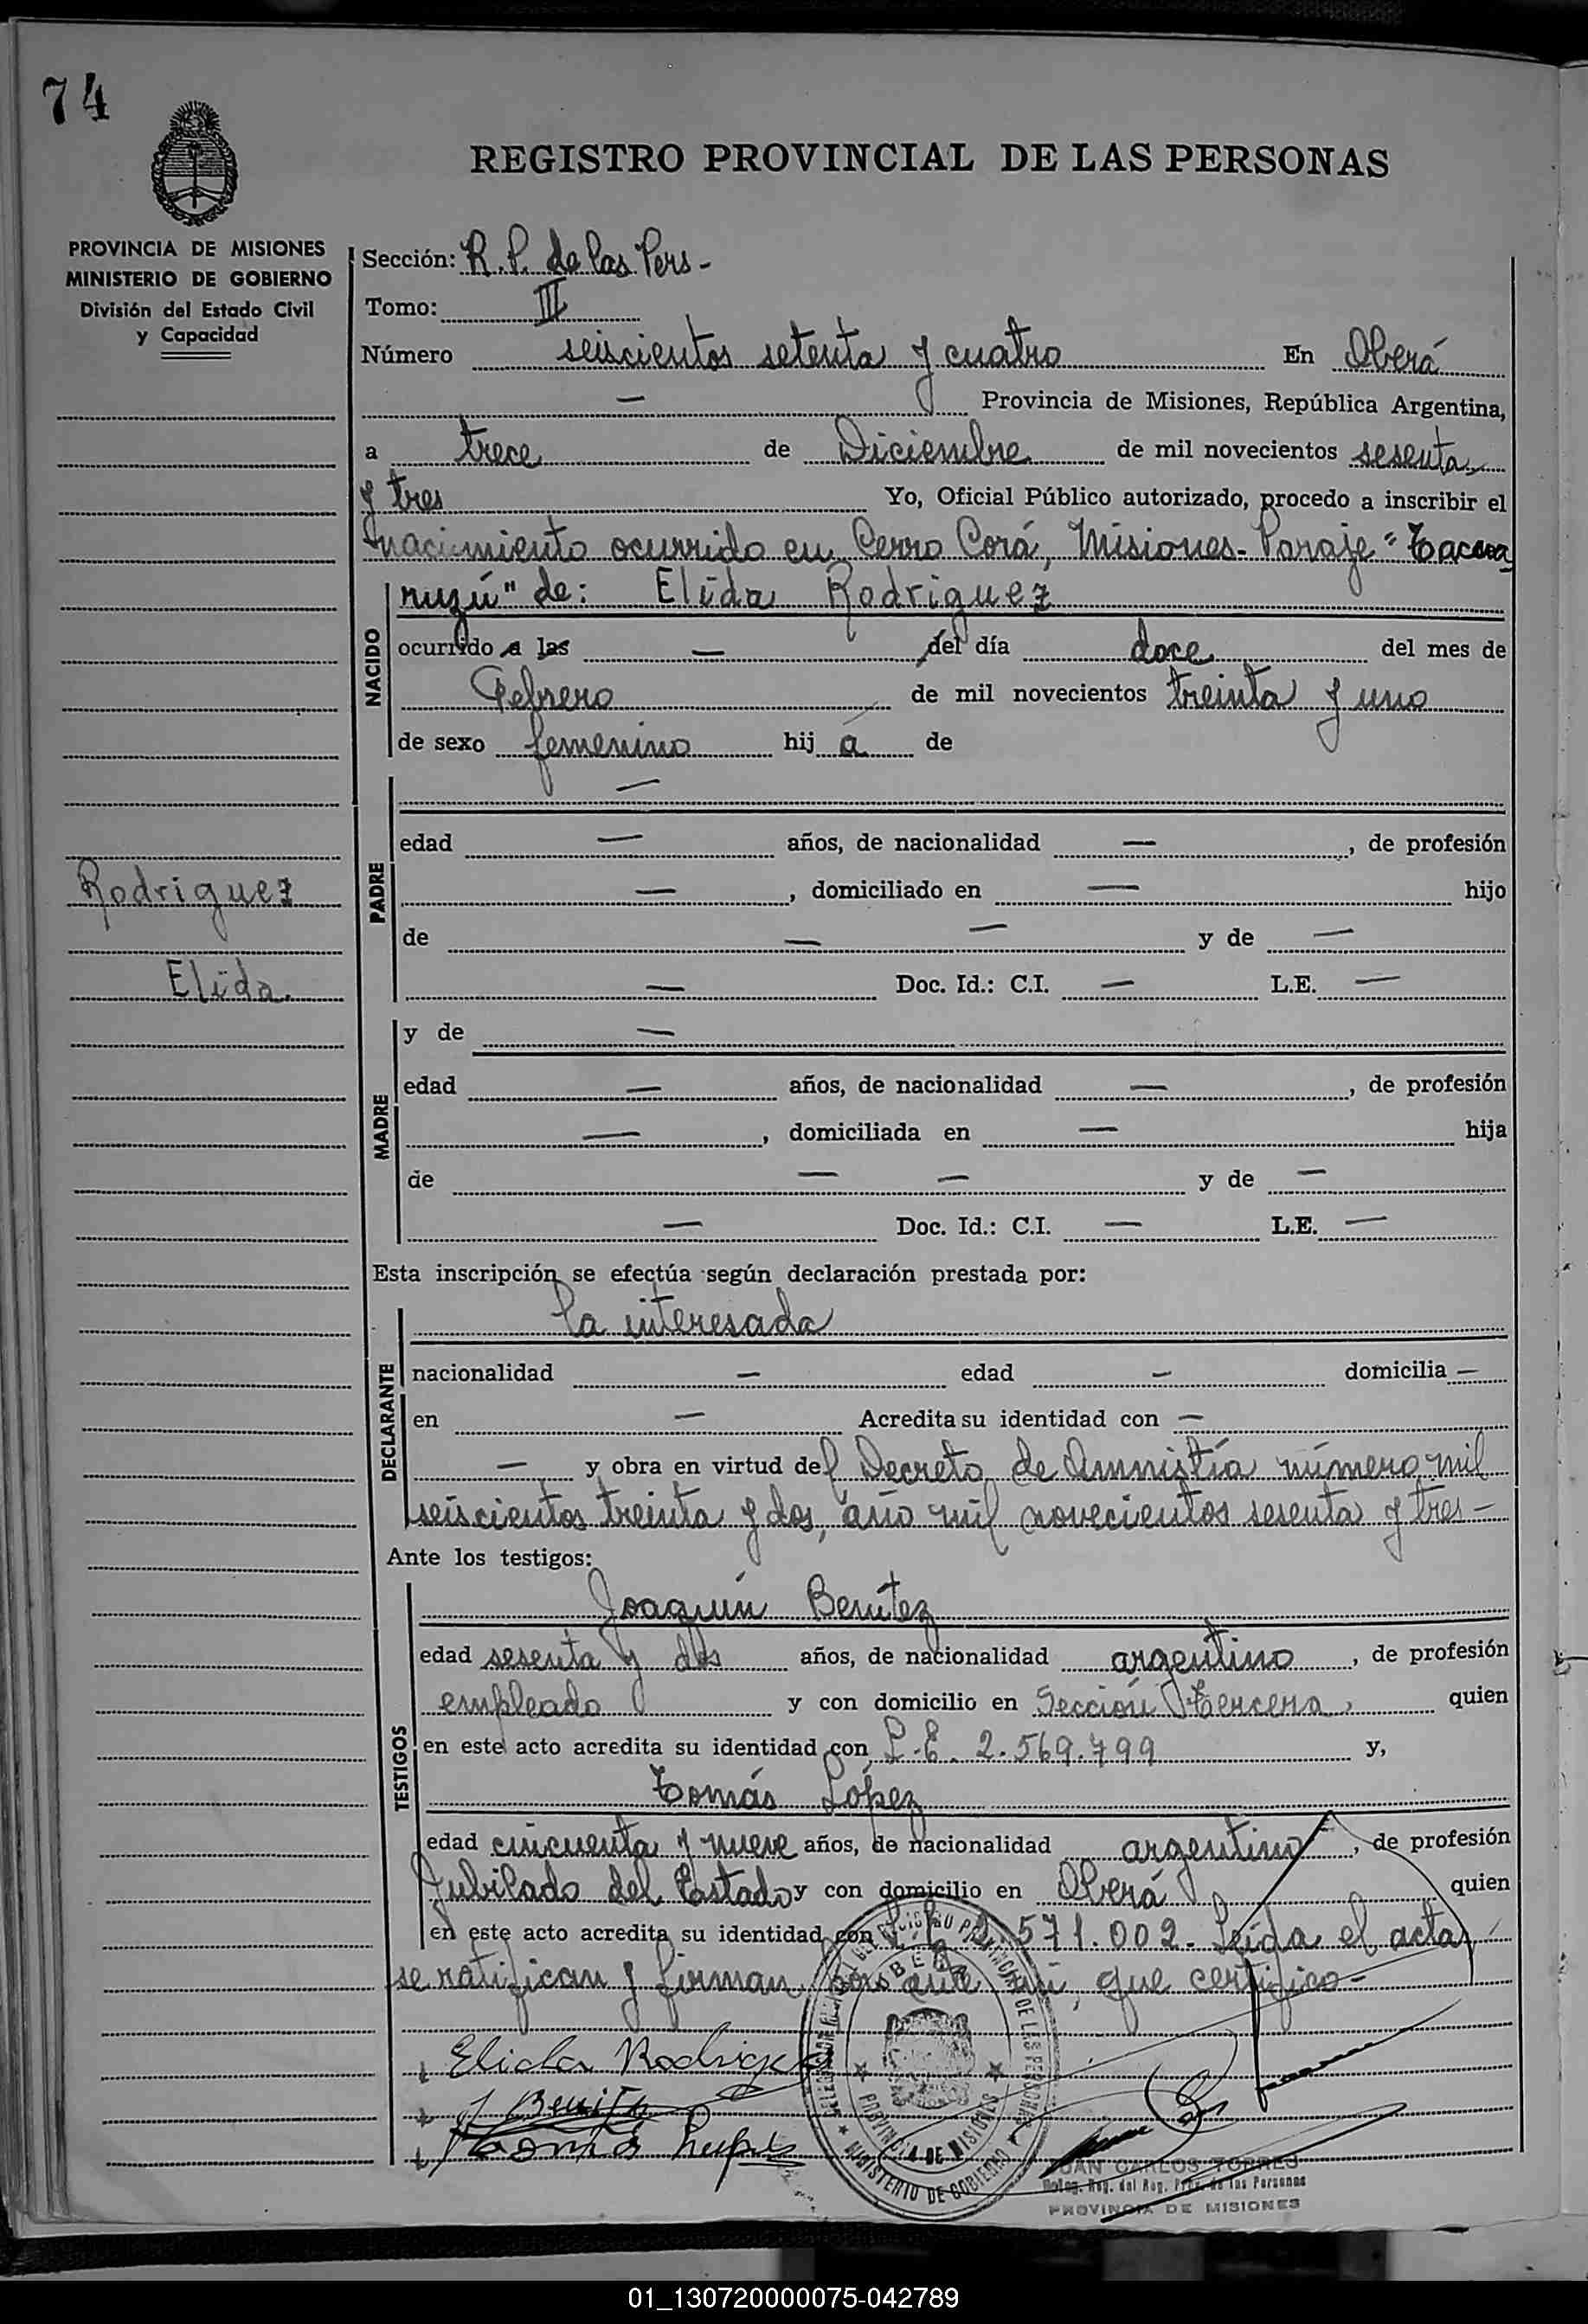 74
REGISTRO PROVINCIAL DE LAS PERSONAS
PROVINCIA DE MISIONES
MINISTERIO DE GOBIERNO
División del Estado Civil
y Capacidad
Sección: R.P. de las Pers-
Tomo: III
Número seiscientos setenta y cuatro En Oberá
— Provincia de Misiones, República Argentina,
a trece de Diciembre de mil novecientos sesenta
y tres Yo, Oficial Público autorizado, procedo a inscribir el
nacimiento ocurrido en Cerro Corá, Misiones- Paraje "Tacua
ruzú" de: Elida Rodriguez
NACIDO
ocurrido a las — del día doce del mes de
Febrero de mil novecientos treinta y uno
de sexo femenino hij a de
PADRE
—
edad — años, de nacionalidad —, de profesión
—, domiciliado en — hijo
de — — y de —
— Doc. Id.: C.I. — L.E. —
Rodriguez
Elida.
MADRE
y de —
edad — años, de nacionalidad —, de profesión
—, domiciliada en — hija
de — — y de —
— Doc. Id.: C.I. — L.E. —
Esta inscripción se efectúa según declaración prestada por:
DECLARANTE
la interesada
nacionalidad — edad — domicilia —
en — Acredita su identidad con —
— y obra en virtud del Decreto de Amnistía número mil
seiscientos treinta y dos, año mil novecientos sesenta y tres-
Ante los testigos:
TESTIGOS
Joaquín Benítez
edad sesenta y dos años, de nacionalidad argentino, de profesión
empleado y con domicilio en Sección Tercera, quien
en este acto acredita su identidad con L.E. 2.569.799 y,
Tomás López
edad cincuenta y nueve años, de nacionalidad argentino, de profesión
Jubilado del Estado y con domicilio en Oberá quien
en este acto acredita su identidad con L.E. 2.571.002. Leída el acta
se ratifican y firman por ante mí, que certifico-
Elida Rodriguez
J Benitez
Tomás
OBERÁ
PROVINCIA DE MISIONES
MINISTERIO DE GOBIERNO
JUAN CARLOS TORRES
Deleg. Reg. del Reg. Prov. de las Personas
PROVINCIA DE MISIONES
01_130720000075-042789